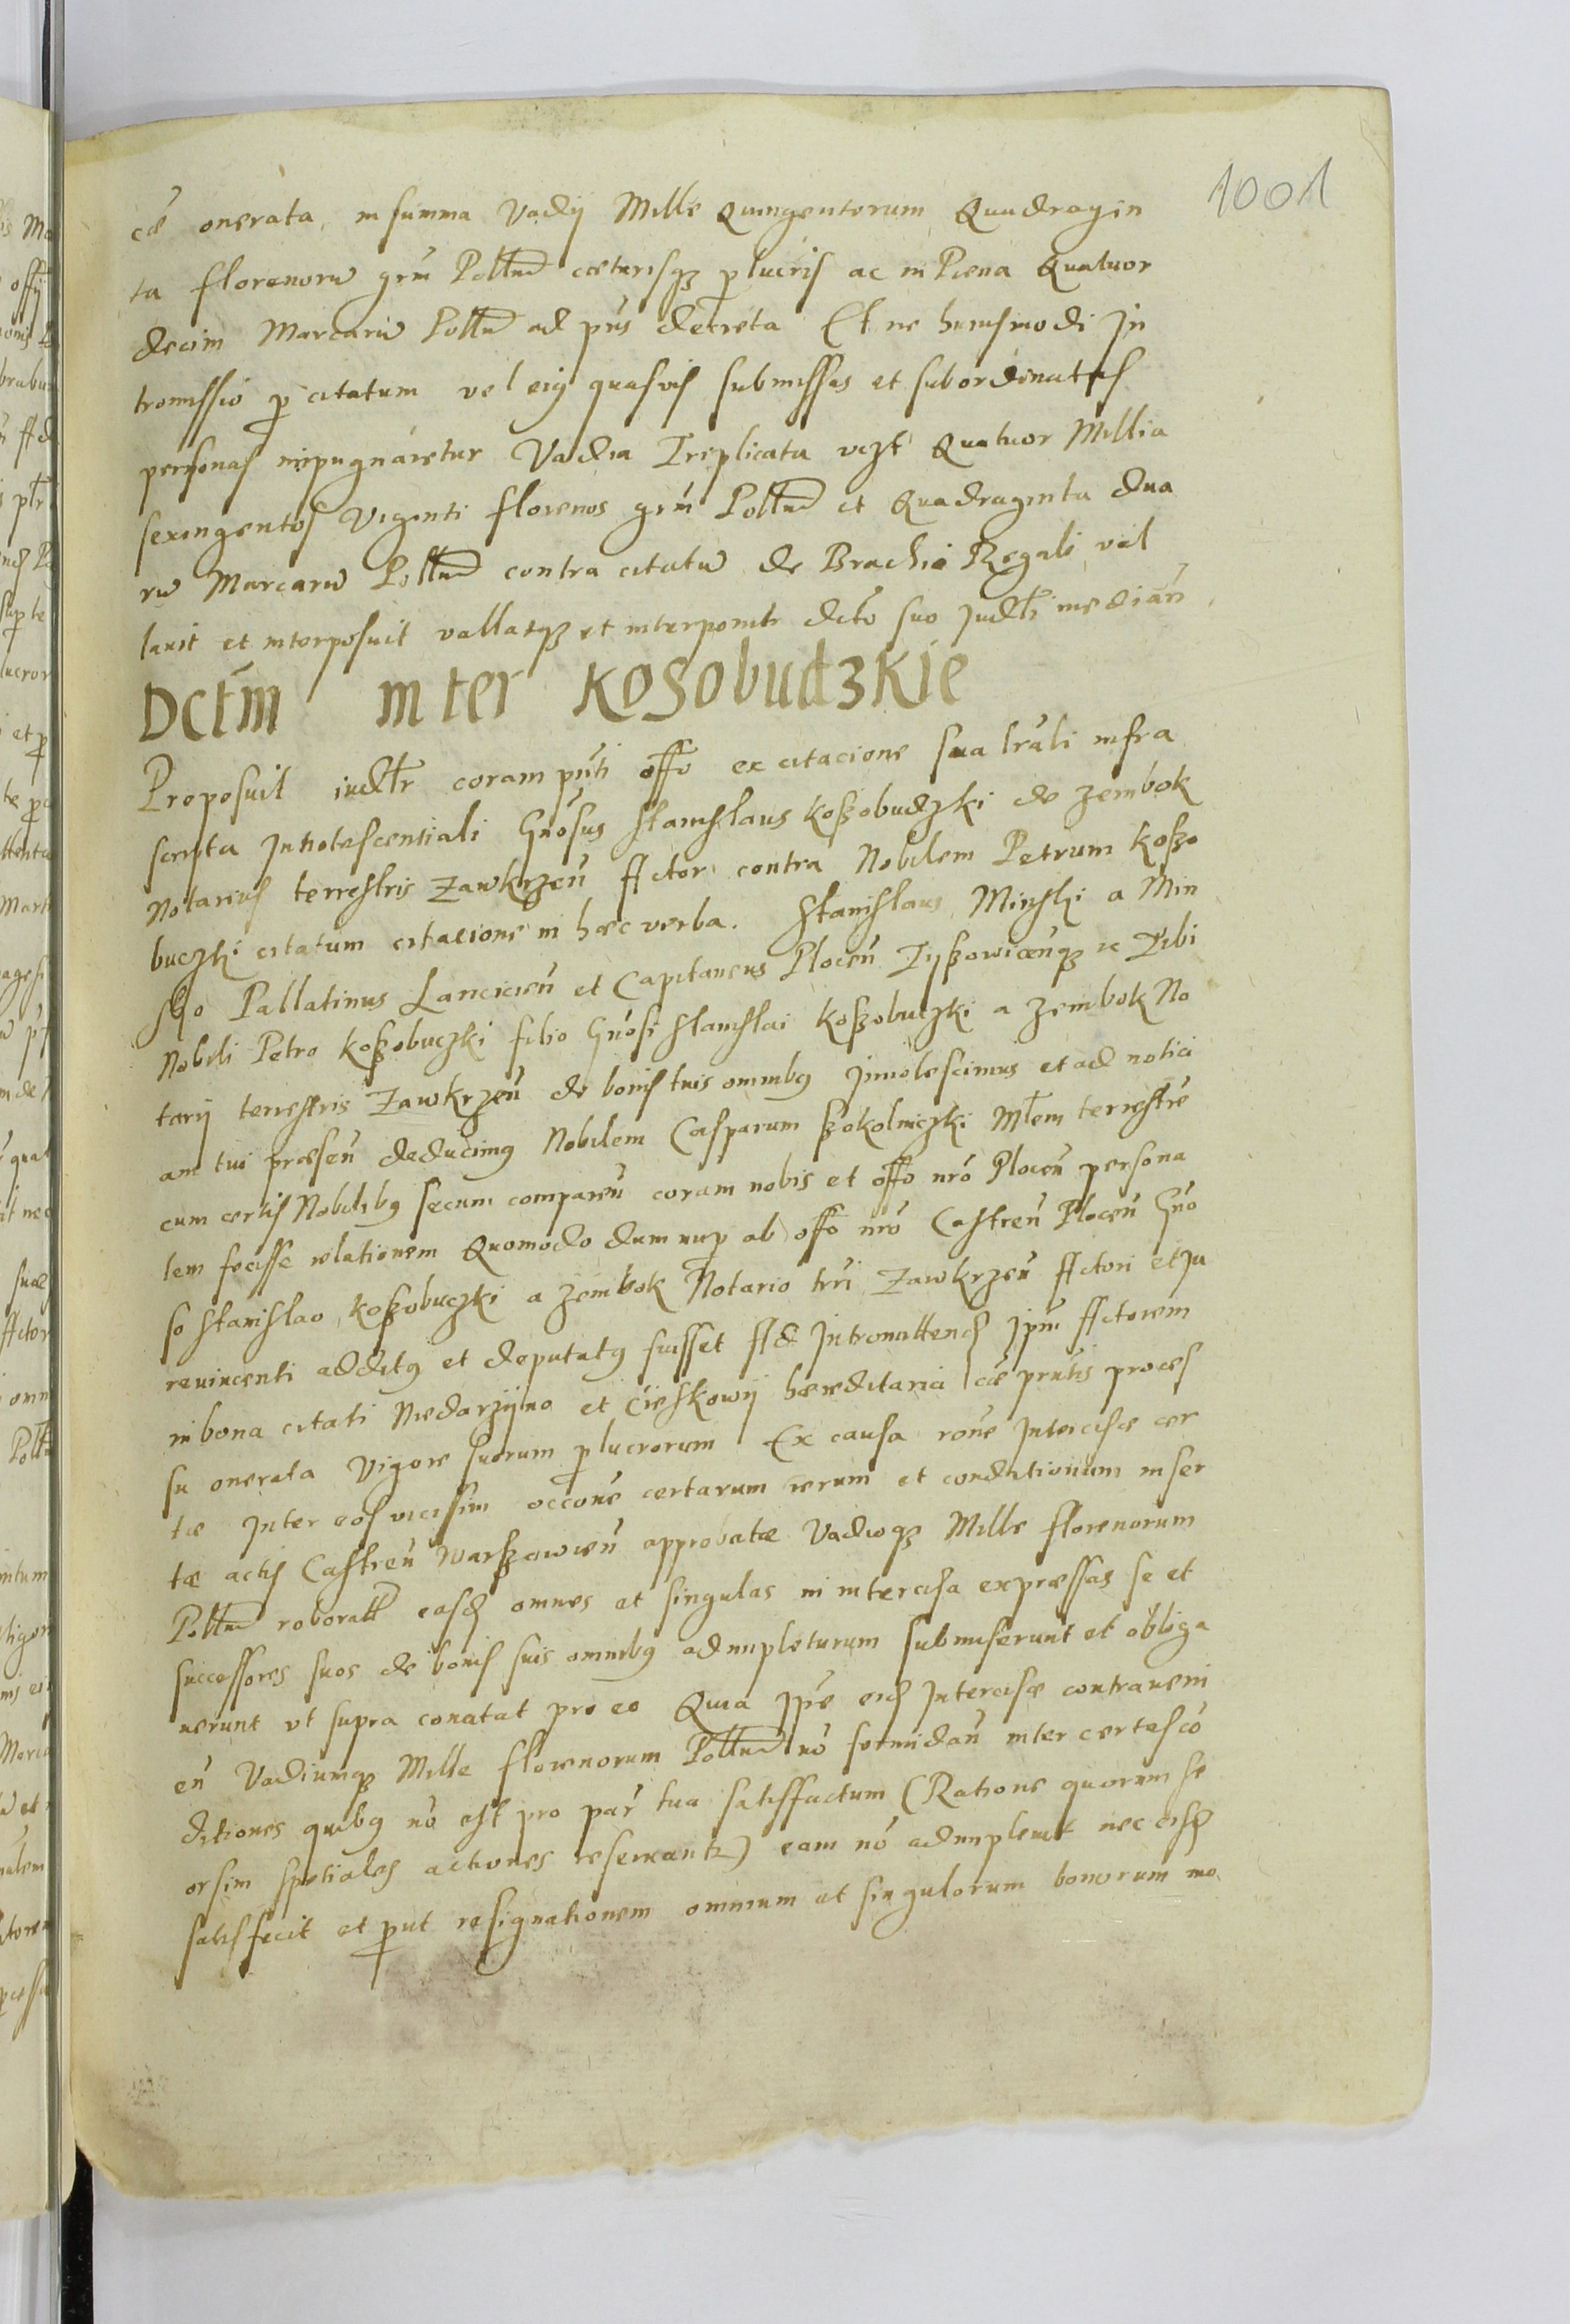 1001
cæ onerata, in summa Vadij Mille Quingentorum Quadragin
ta florenorū grū Polltū cæterisqꝫ plucris ac in Pæna Quatuor
decim Marcarū Polltū ad pn̄s decreta Et ne huiusmodi In
tromissio ꝑ citatum vel eiꝯ quasvis submissas et subordinatas
personas impugnaretur Vadia Triplicata vczt Quatuor Millia
sexingentos Viginti florenos grū Polltū et Quadraginta dua
rū Marcarū Polltū contra citatū de Brachio Regali val
lavit et interposuit vallatqꝫ et interponit dcto suo Judtr̄ median̄
Dctm̄ inter Kosobudzkie
Proposuit iudtr̄ coram pn̄ti offo ex citacione sua lrāli infra
scripta Intiotescentiali Gnōsus Stanislaus Koszobudzki de Zembok
Notarius terrestris Zawkrzen̄ Actor contra Nobilem Petrum Koszo
buczki citatum citacione in hæc verba. Stanislaus Minski a Min
sko Pallatinus Lancicien̄ et Capitaneus Plocen̄ Tyszowicen̄qꝫ ꝛc Tibi
Nobili Petro Koszobuczki filio Gnōsi Stanislai Koszobuczki a Zembok No
tarij terrestris Zawkrzen̄ de bonis tuis omnibꝯ Jnnotescimus et ad notici
am tui præsen̄ deducimꝯ Nobilem Casparum Szokolniczki Mtem terrestrē
cum certis Nobilibꝯ secum comparen̄ coram nobis et offo nrō Plocen̄ persona
lem fecisse relationem Quomodo dum nuꝑ ab offo nrō Castren̄ Plocen̄ Gnō
so Stanislao Koszobuczki a Zembok Notario trri Zawkrzen̄ Actori et Ju
revincenti additꝯ et deputatꝯ fuisset Ad Intromittend Jpm̄ Actorem
in bona citati Niedarzyno et Cieskowy hæreditaria cæ prn̄tis proces
su onerata Vigore suorum ꝑlucrorum Ex causa rone Intercisæ cer
tæ Inter eos vicissim occone certarum rerum et conditionum inser
tæ actis Castren̄ Warszawien̄ approbatæ Vadioqꝫ Mille florenorum
Polltū roborat easd omnes et singulas in intercisa expressas se et
successores suos de bonis suis omnibꝯ adimpleturum submiserunt et obliga
verunt vt supra conatat pro eo Quia Jpse eid Intercisæ contraveni
en̄ Vadiumqꝫ Mille florenorum Polltū nō formidan̄ inter certas cō
ditiones quibꝯ nō est pro par tua satisfactum (Ratione quorum se
orsim spetiales actiones reservantr) eam nō adimplevit nec eisd
satisfecit et ꝓut resignationem omnium et singulorum bonorum mo